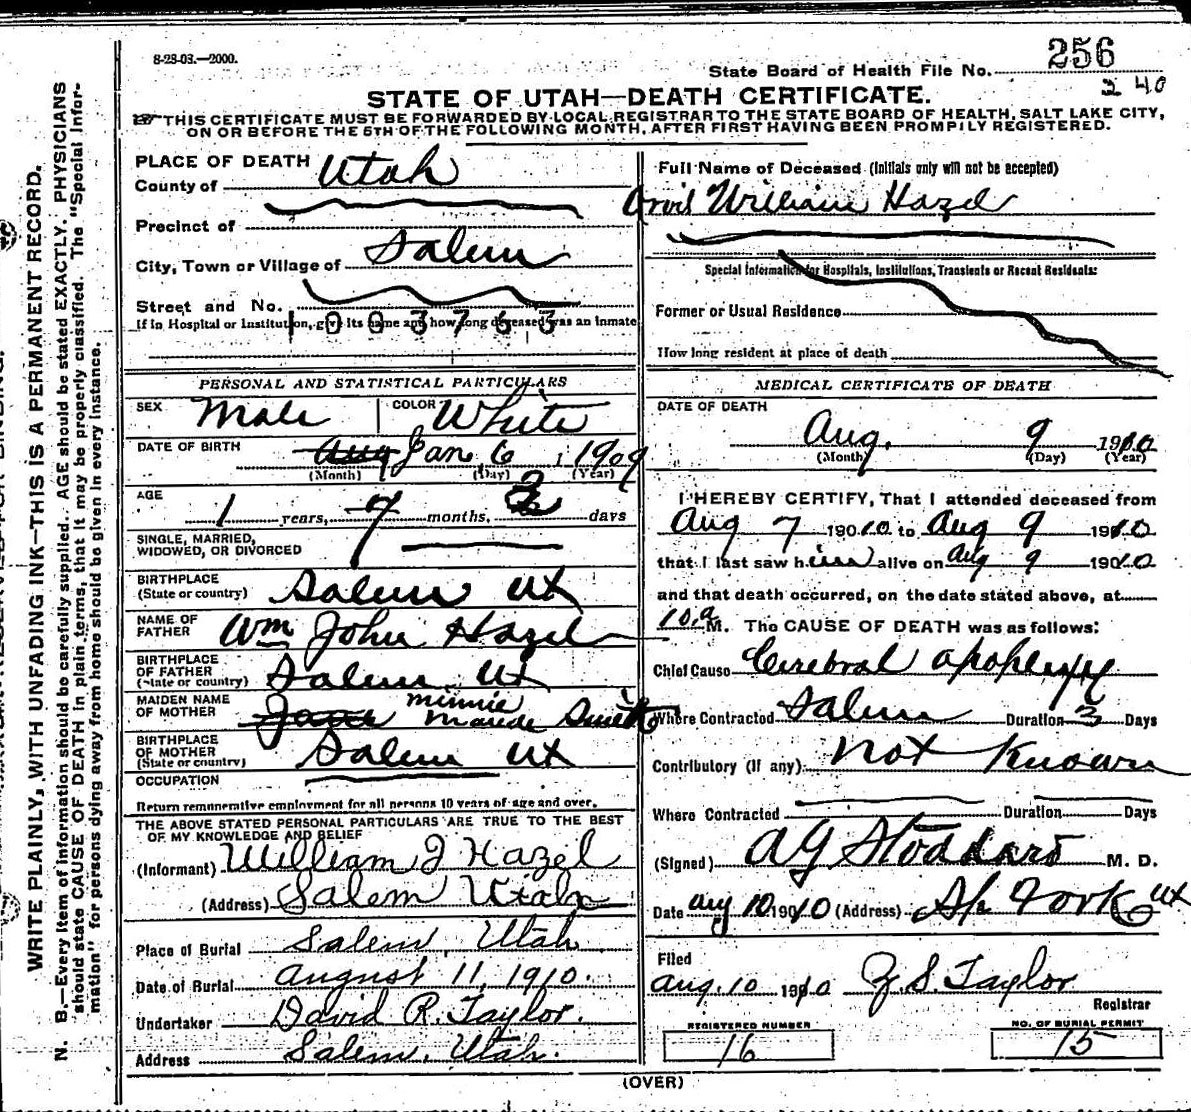 8-23-03.—2000.
256
State Board of Health File No.
240
STATE OF UTAH—DEATH CERTIFICATE.
THIS CERTIFICATE MUST BE FORWARDED BY LOCAL REGISTRAR TO THE STATE BOARD OF HEALTH, SALT LAKE CITY,
ON OR BEFORE THE 5TH OF THE FOLLOWING MONTH, AFTER FIRST HAVING BEEN PROMPILY REGISTERED.
WRITE PLAINLY, WITH UNFADING INK—THIS IS A PERMANENT RECORD.
N. B.—Every item of information should be carefully supplied. AGE should be stated EXACTLY. PHYSICIANS
should state CAUSE OF DEATH in plain terms, that it may be properly classified. The "Special Infor-
mation" for persons dying away from home should be given in every instance.
PLACE OF DEATH
County of Utah
Precinct of
City, Town or Village of Salem
Street and No.
1003763
If in Hospital or Institution, give its name and how long deceased was an inmate
PERSONAL AND STATISTICAL PARTICULARS
SEX Male COLOR White
DATE OF BIRTH Aug Jan 6 1909
(Month) (Day) (Year)
AGE
1 years, 7 months, 3 days
SINGLE, MARRIED,
WIDOWED, OR DIVORCED
BIRTHPLACE
(State or country) Salem Ut
NAME OF
FATHER Wm John Hazel
BIRTHPLACE
OF FATHER
(State or country) Salem Ut
MAIDEN NAME
OF MOTHER Jane Minnie Maude Smith
BIRTHPLACE
OF MOTHER
(State or country) Salem Ut
OCCUPATION
Return remunerative employment for all persons 10 years of age and over.
THE ABOVE STATED PERSONAL PARTICULARS ARE TRUE TO THE BEST
OF MY KNOWLEDGE AND BELIEF
(Informant) William J Hazel
(Address) Salem Utah
Place of Burial Salem, Utah
Date of Burial August 11, 1910.
Undertaker David R. Taylor.
Address Salem, Utah.
Full Name of Deceased (Initials only will not be accepted)
Orvil William Hazel
Special Information for Hospitals, Institutions, Transients or Recent Residents:
Former or Usual Residence
How long resident at place of death
MEDICAL CERTIFICATE OF DEATH
DATE OF DEATH
Aug. 9 1910
(Month) (Day) (Year)
I HEREBY CERTIFY, That I attended deceased from
Aug 7 19010 to Aug 9 1910
that I last saw him alive on Aug 9 19010
and that death occurred, on the date stated above, at
10 a M. The CAUSE OF DEATH was as follows:
Chief Cause Cerebral apoplexy
Where Contracted Salem Duration 3 Days
Contributory (if any) Not Known
Where Contracted Duration Days
(Signed) A G Stoddard M. D.
Date Aug 10 19010 (Address) Sp. Fork Ut
Filed
Aug. 10 1910 Z. S. Taylor
Registrar
REGISTERED NUMBER
16
NO. OF BURIAL PERMIT
15
(OVER)